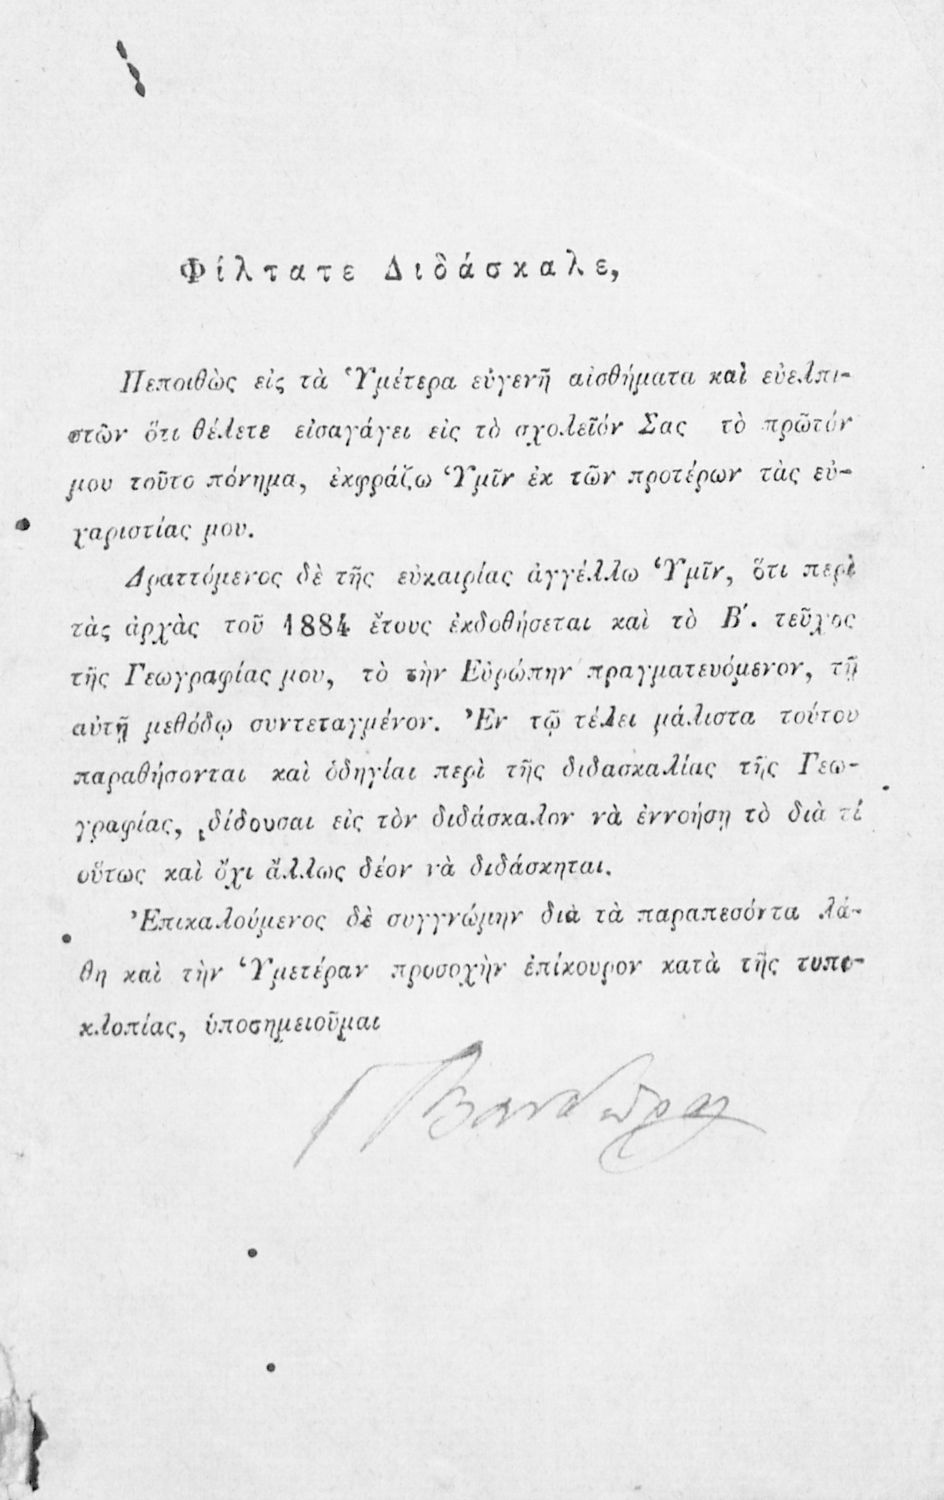 Φίλτατε Διδάσκαλε,
Πεποιθὼς εἰς τὰ Ὑμέτερα εὐγενῆ αἰσθήματα καὶ εὐελπι-
στῶν ὅτι θέλετε εἰσαγάγει εἰς τὸ σχολεῖόν Σας τὸ πρῶτόν
μου τοῦτο πόνημα, ἐκφράζω Ὑμῖν ἐκ τῶν προτέρων τὰς εὐ-
χαριστίας μου.
Δραττόμενος δὲ τῆς εὐκαιρίας ἀγγέλλω Ὑμῖν, ὅτι περὶ
τὰς ἀρχὰς τοῦ 1884 ἔτους ἐκδοθήσεται καὶ τὸ Β΄. τεῦχος
τῆς Γεωγραφίας μου, τὸ τὴν Εὐρώπην πραγματευόμενον, τῇ
αὐτῇ μεθόδῳ συντεταγμένον. Ἐν τῷ τέλει μάλιστα τούτου
παραθήσονται καὶ ὁδηγίαι περὶ τῆς διδασκαλίας τῆς Γεω-
γραφίας, δίδουσαι εἰς τὸν διδάσκαλον νὰ ἐννοήσῃ τὸ διὰ τί
οὕτως καὶ ὄχι ἄλλως δέον νὰ διδάσκηται.
Ἐπικαλούμενος δὲ συγγνώμην διὰ τὰ παραπεσόντα λά-
θη καὶ τὴν Ὑμετέραν προσοχὴν ἐπίκουρον κατὰ τῆς τυπο-
κλοπίας, ὑποσημειοῦμαι